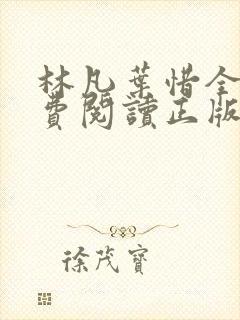 林凡葉惜全
費閱讀正版
徐茂寶